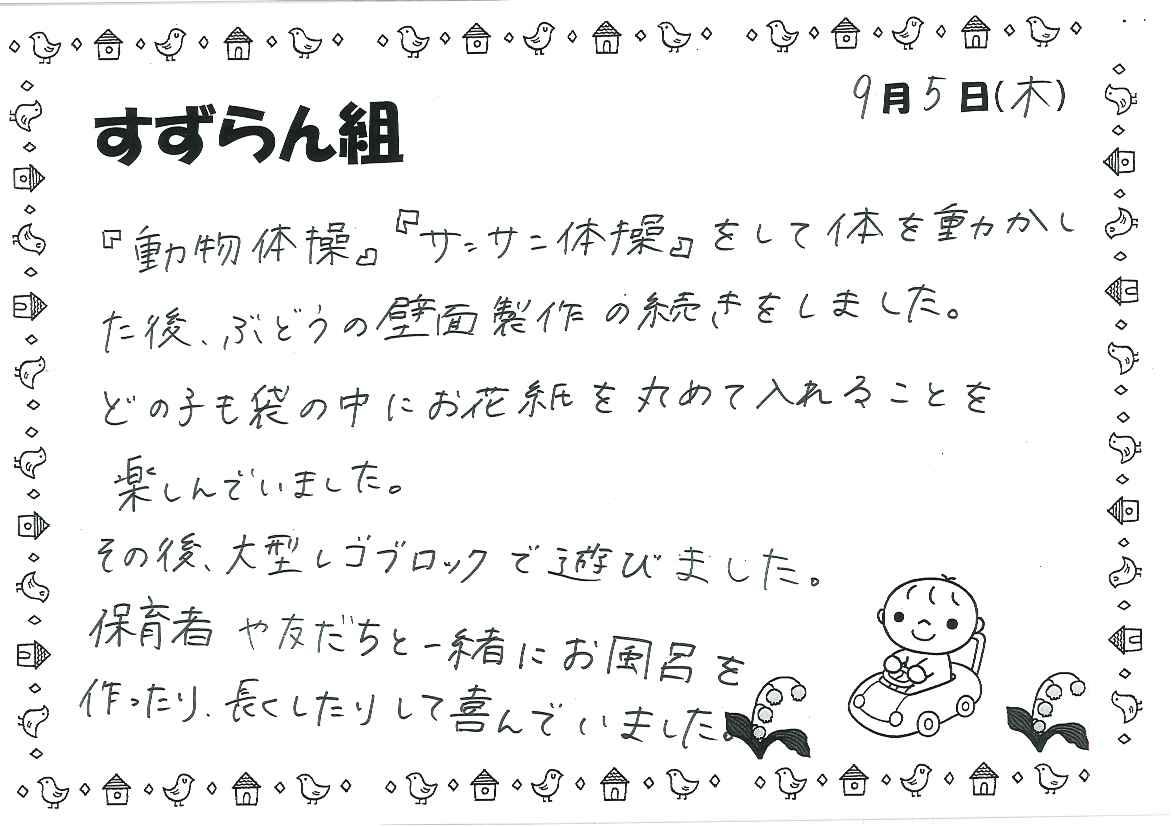 9月5日(木)
すずらん組
『動物体操』『サンサン体操』をして体を動かし
た後、ぶどうの壁面製作の続きをしました。
どの子も袋の中にお花紙を丸めて入れることを
楽しんでいました。
その後、大型レゴブロックで遊びました。
保育者や友だちと一緒にお風呂を
作ったり、長くしたりして喜んでいました。